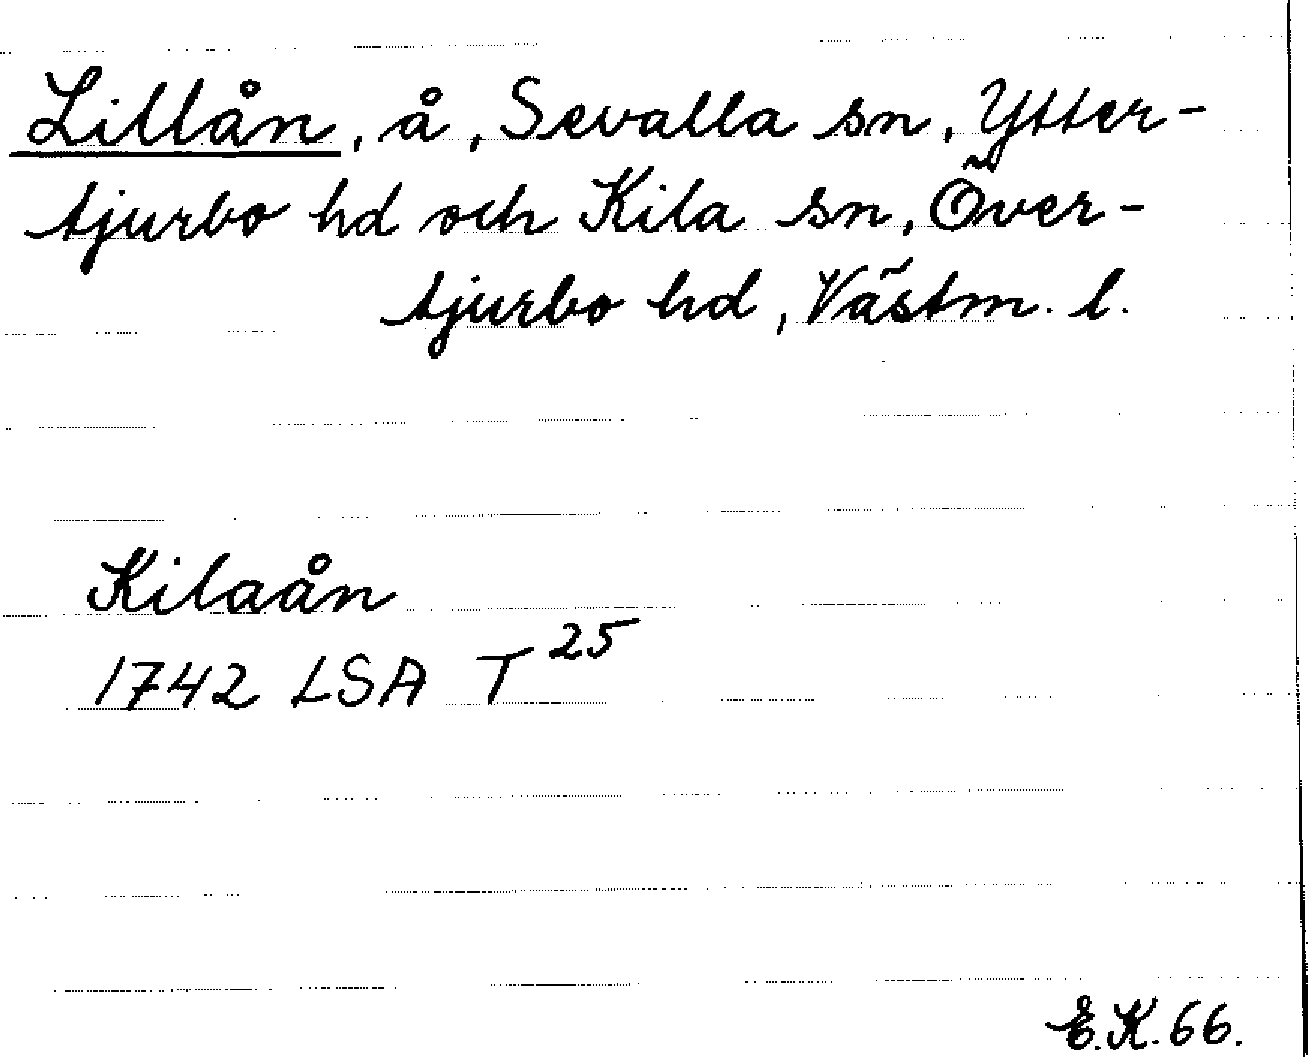 Lillån, å, Sevalla sn, Ytter-
tjurbo hd och Kila sn, Över-
tjurbo hd, Västm. l.
Kilaån
1742 LSA T 25
E.K. 66.